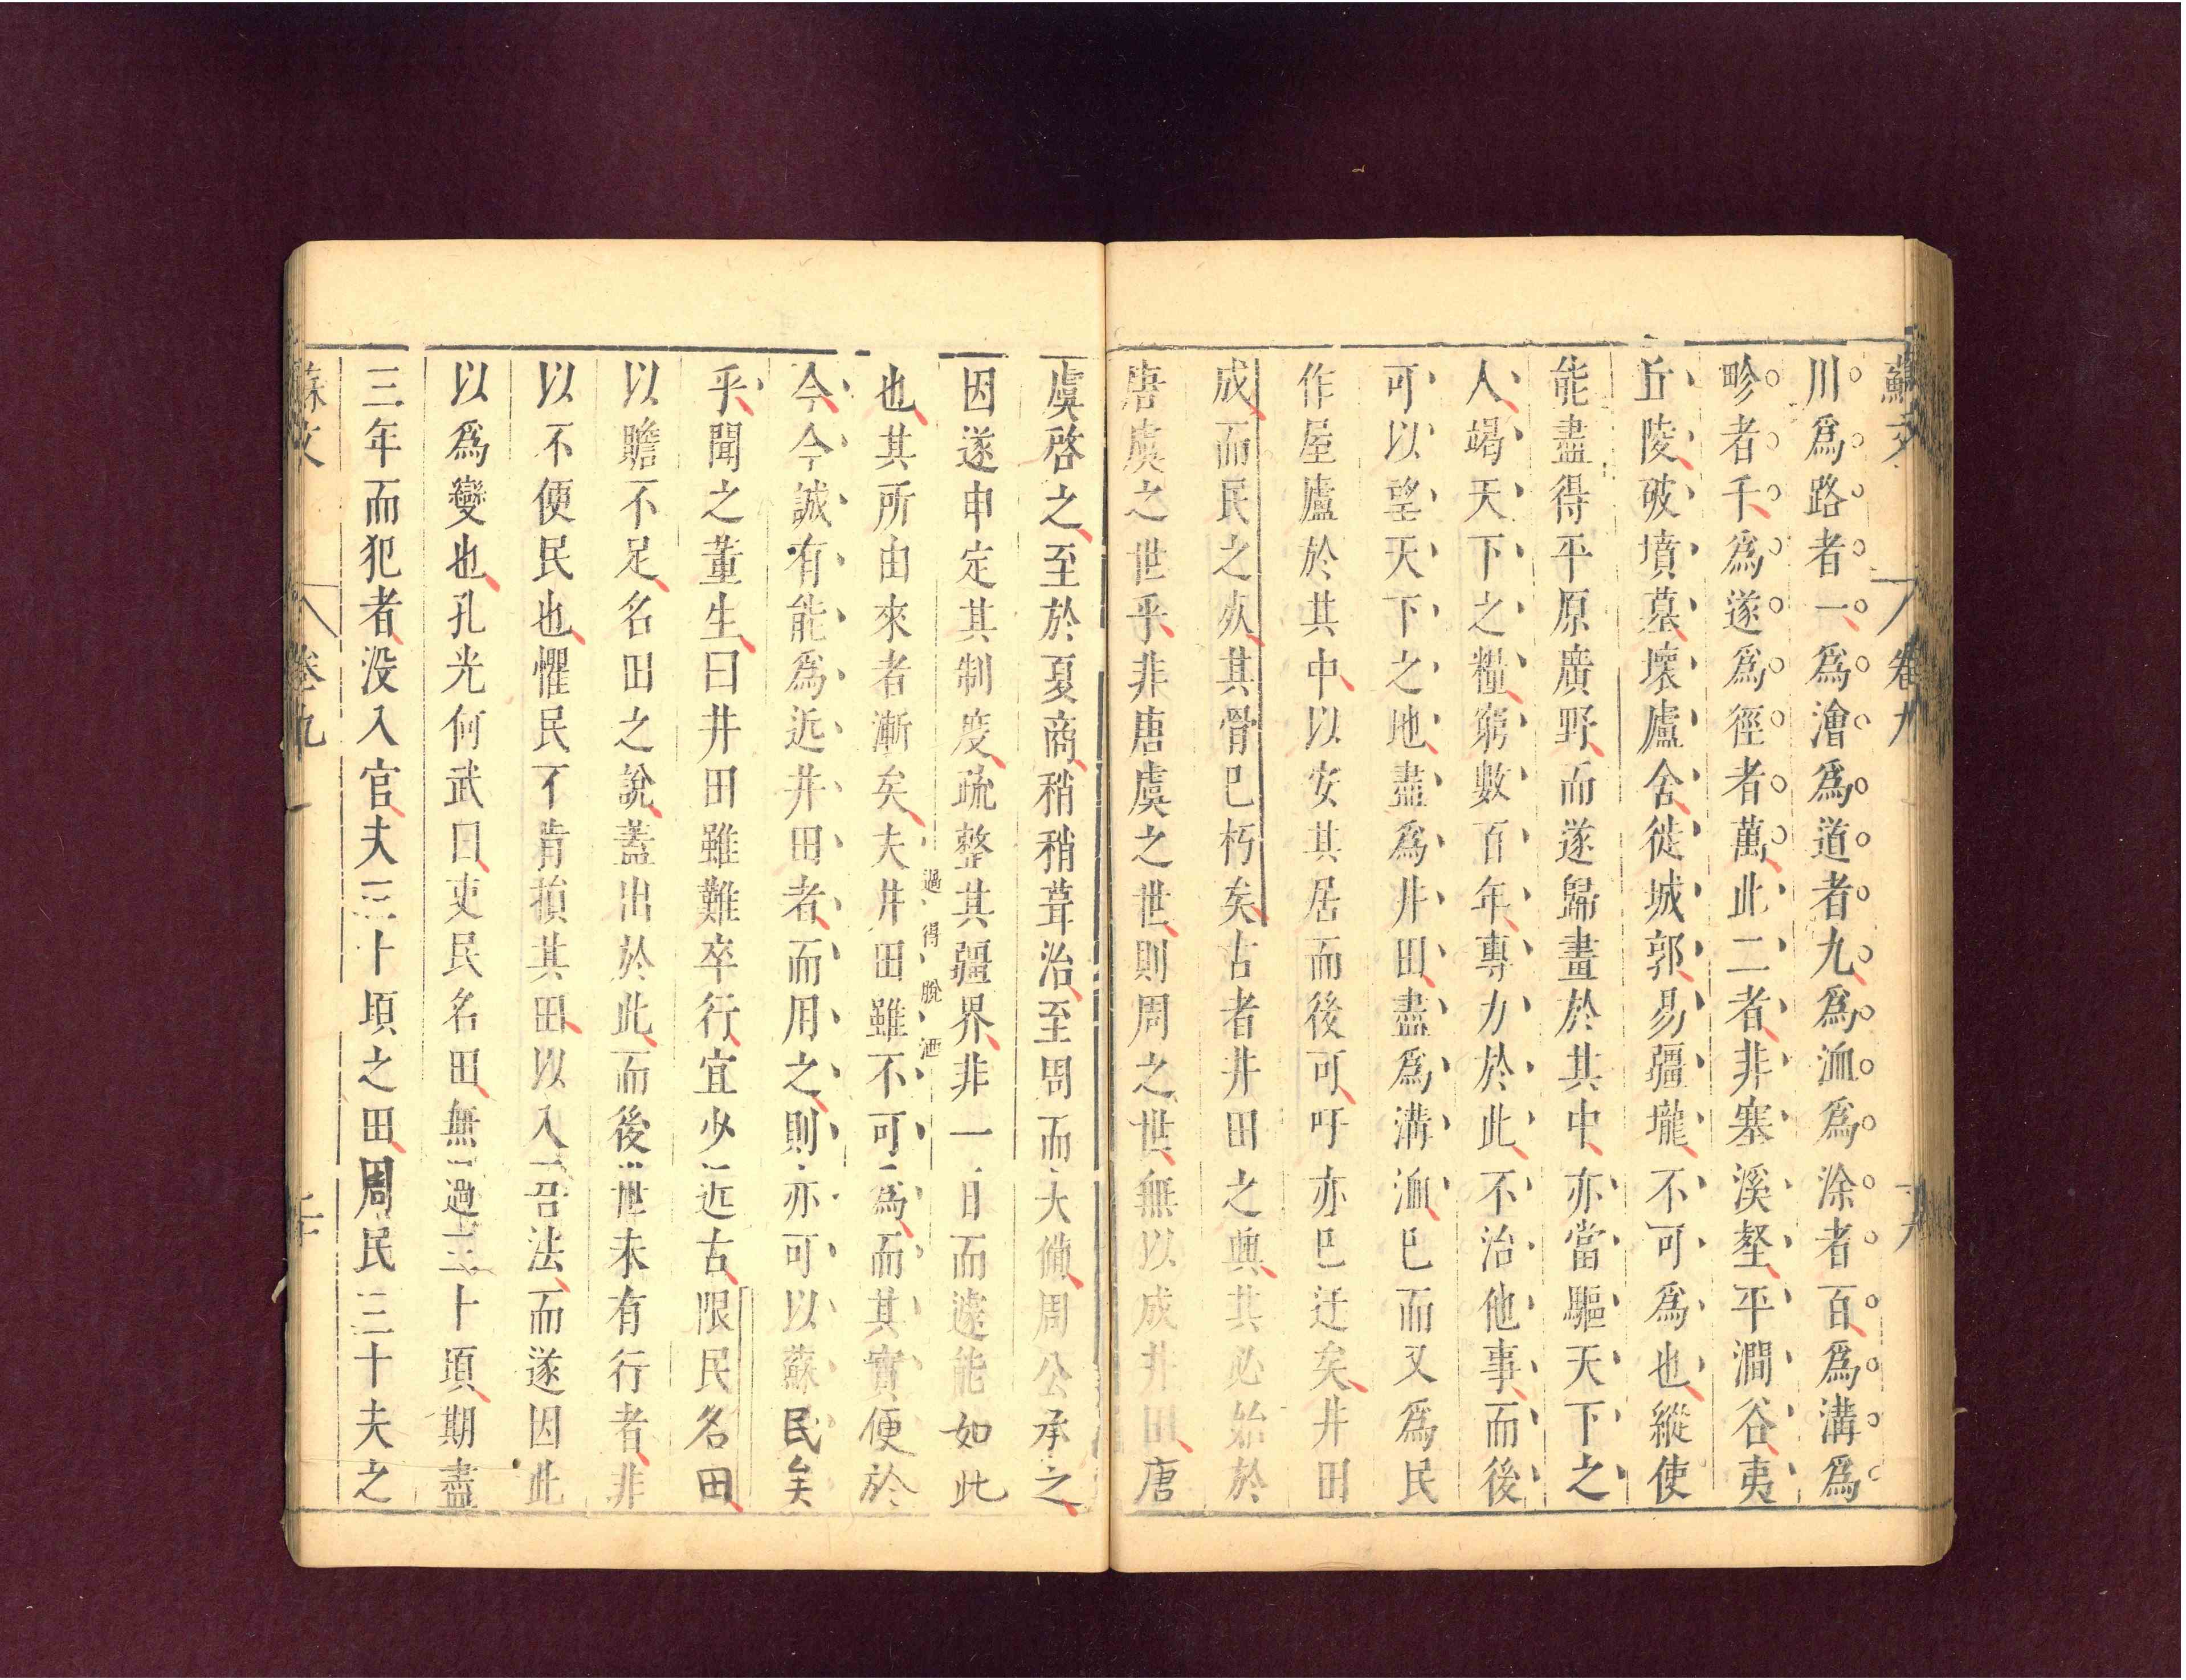 蘇文 卷九
川爲路者一爲澮爲道者九爲洫爲涂者百爲溝爲
畛者千爲遂爲徑者萬此二者非塞溪壑平澗谷夷
丘陵破墳墓壞廬舍徙城郭易疆壠不可爲也縱使
能盡得平原廣野而遂歸畫於其中亦當驅天下之
人竭天下之糧窮數百年專力於此不治他事而後
可以望天下之地盡爲井田盡爲溝洫巳而又爲民
作屋廬於其中以安其居而後可吁亦巳迂矣井田
成而民之灰其骨巳朽矣古者井田之興其必始於
唐虞之世乎非唐虞之世則周之世無以成井田唐
虞啓之至於夏商稍稍葺治至周而大備周公承之
因遂申定其制度疏整其疆界非一日而遽能如此
也其所由來者漸矣夫井田雖不可爲而其實便於
過得脫洒
今今誠有能爲近井田者而用之則亦可以蘇民矣
乎聞之董生曰井田雖難卒行宜少近古限民名田
以贍不足名田之說蓋出於此而後世未有行者非
以不便民也懼民不肯損其田以入吾法而遂因此
以爲變也孔光何武曰吏民名田無過三十頃期盡
三年而犯者没入官夫三十頃之田周民三十夫之
蘇文 卷九